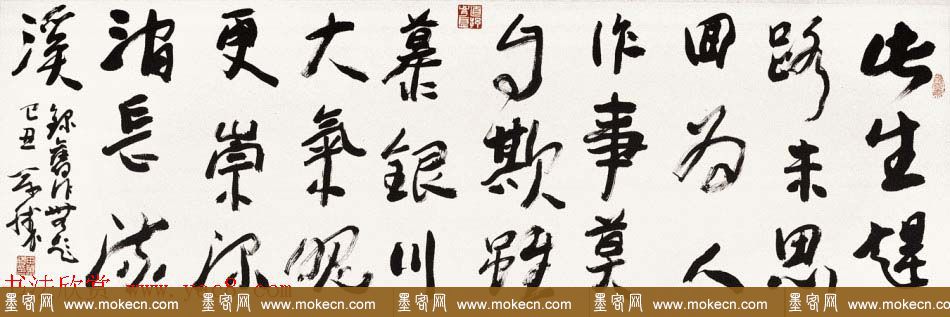 此生趕
路未思
回为人
作事莫
自欺雖
慕银川
大氣魄
更崇
涓長流
溪
錄舊作
己丑
书法欣赏 www.yac8.com
墨客网 www.mokecn.com 墨客网 www.mokecn.com 墨客网 www.mokecn.com 墨客网 www.mokecn.com 墨客网 www.mokecn.com